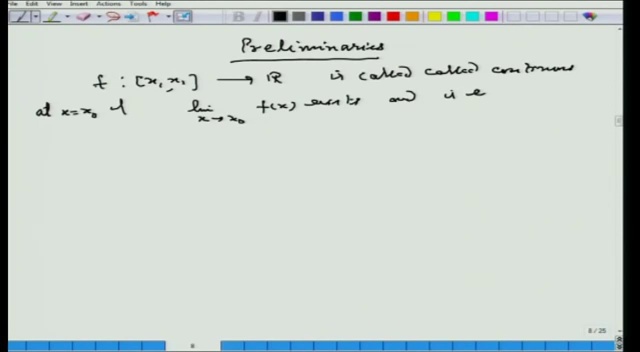 File Edit View Insert Actions Tools Help
Preliminaries
f : [x₁, x₁] → ℝ is called called continuous
at x=x₀ if lim x→x₀ f(x) exists and is e
8 / 25
8